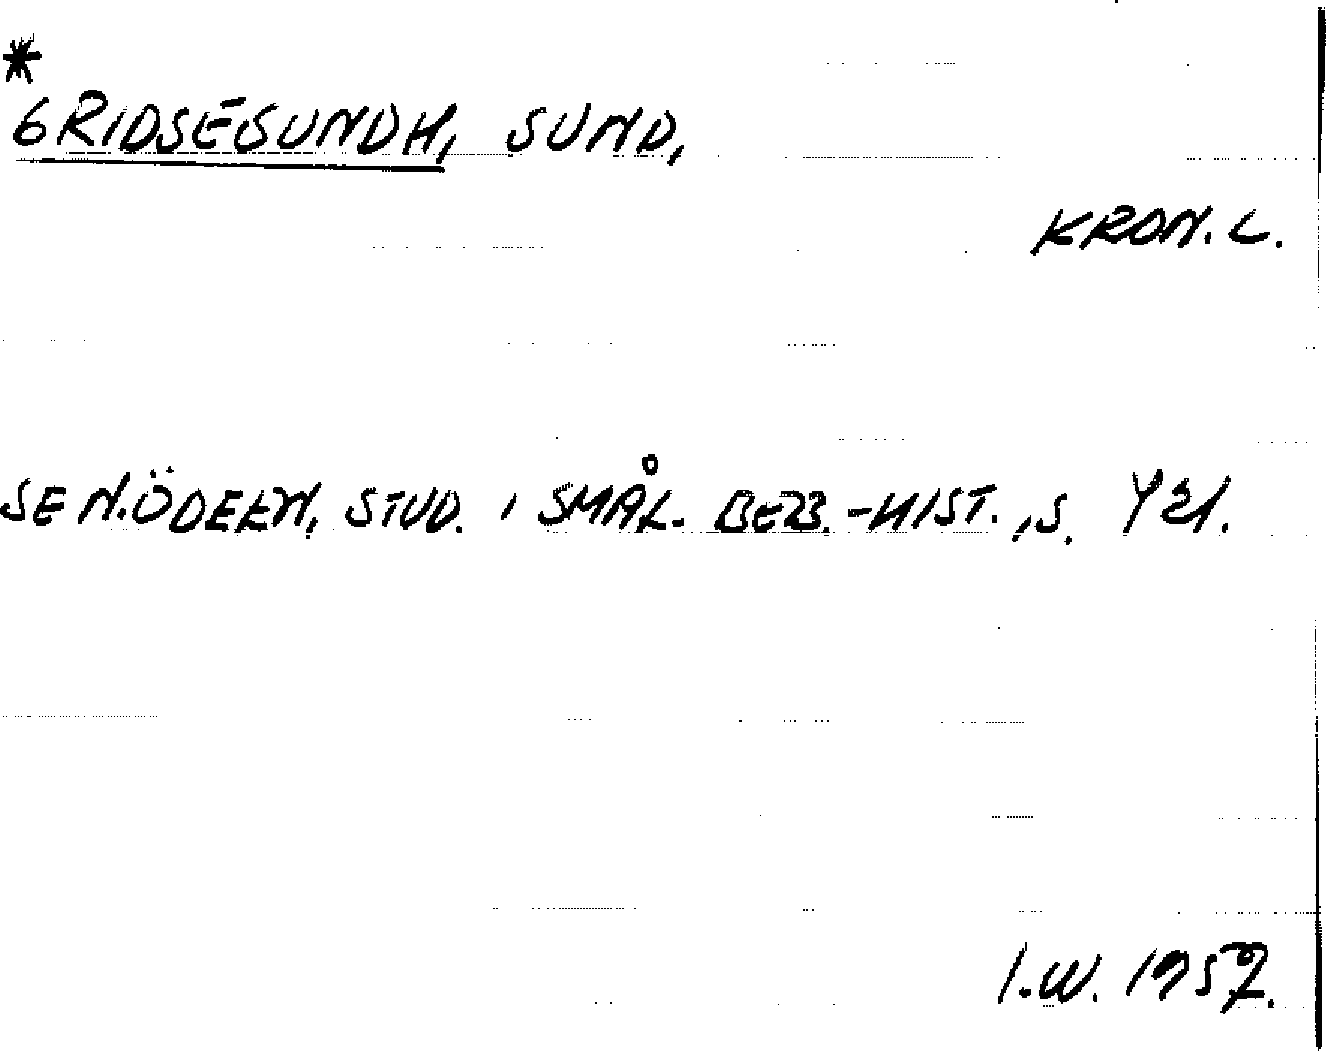 *
GRIDSESUNDH, SUND,
KRON. L.
SE N. ÖDEEN, STUD. I SMÅL. BEBB.-HIST., S.
I.W. 1957.